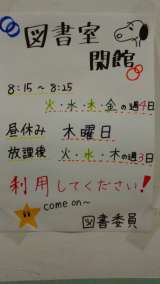 図書室
開館
8:15～8:25
火・水・木・金の週4日
昼休み 木曜日
放課後 火・水・木の週3日
利用してください!
come on~
図書委員